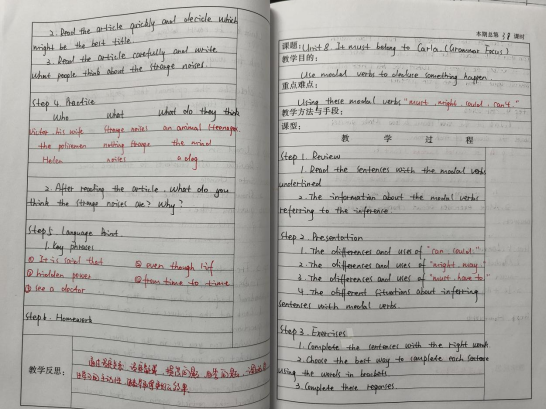 2. Read the article quickly and decide which
might be the best title.
3. Read the article carefully and write
what people think about the strange noises.
Step 4 Practice
Who what what do they think
Victor, his wife strange noises an animal
the policemen nothing strange the wind
Helen noises a dog
2. After reading the article, What do you
think the strange noises are? Why?
Step 5 Language Point
1. Key phrases
① It is said that ② even though / if
③ hidden power
⑤ see a doctor
Step 6. Homework
教学反思:
本期总第 38 课时
课题: Unit 8 It must belong to Carla. (Grammar Focus)
教学目的:
Use modal verbs to deduce something happen.
重点难点:
Using these modal verbs "must, might, could, can't."
教学方法与手段:
课型:
教 学 过 程
Step 1 Review
1. Read the sentences with the modal verbs
underlined
2. The information about the modal verbs
referring to the inference.
Step 2. Presentation
1. The differences and uses of "can, could."
2. The differences and uses of "might, may."
3. The differences and uses of "must, have to."
4. The different situations about inferring
sentences with modal verbs
Step 3. Exercises
1. Complete the sentences with the right
2. Choose the best way to complete each
using the words in brackets
3. Complete these